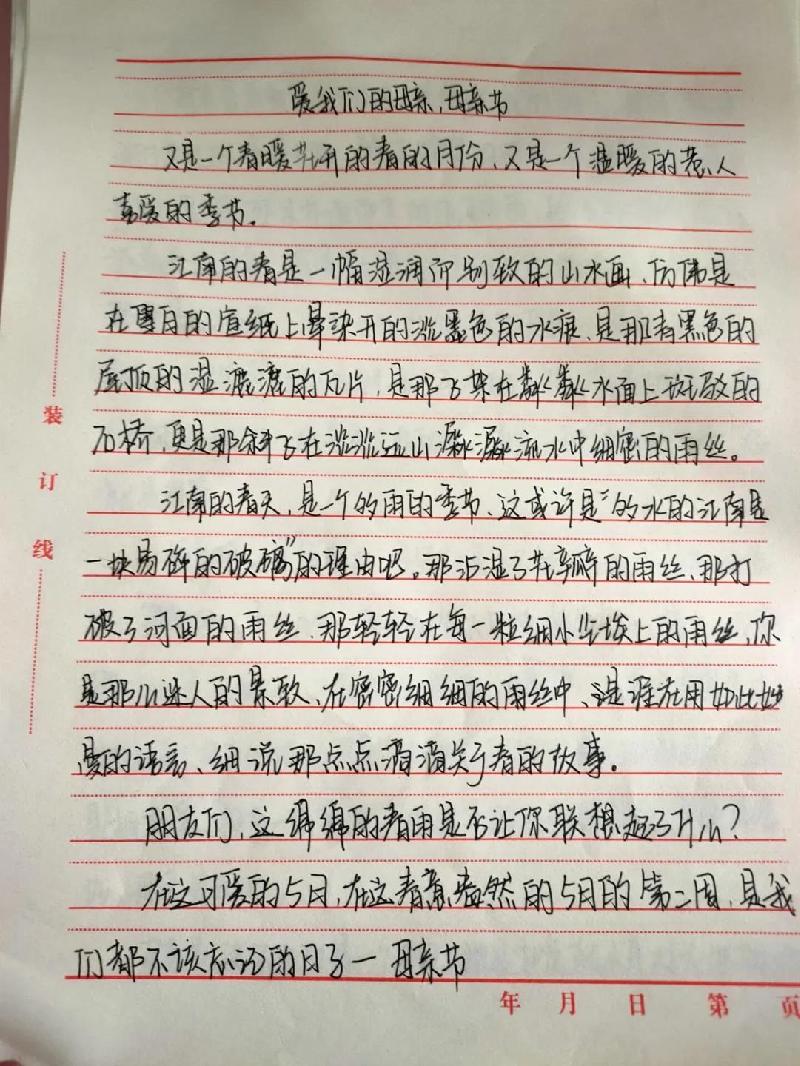 爱我们的母亲,母亲节
又是一个春暖花开的春的月份,又是一个温暖的惹人
喜爱的季节。
江南的春是一幅湿润而别致的山水画,仿佛是
在雪白的宣纸上晕染开的淡墨色的水痕、是那青黑色的
屋顶的湿漉漉的瓦片,是那了架在粼粼水面上斑驳的
石桥,更是那斜飞在淡淡远山潺潺流水中细密的雨丝。
江南的春天,是一个多雨的季节、这或许是"多水的江南是
一块易碎的玻璃"的理由吧。那沾湿了花瓣的雨丝、那打
破了河面的雨丝、那轻轻在每一粒细小尘埃上的雨丝,你
是那么迷人的景致、在密密细细的雨丝中、是谁在用如此妙
曼的语言、细说那点点滴滴关于春的故事。
朋友们,这绵绵的春雨是否让你联想起了什么?
在这可爱的5月,在这春意盎然的5月的第二周,是我
们都不该忘记的日子一母亲节
装订线
年 月 日 第 页